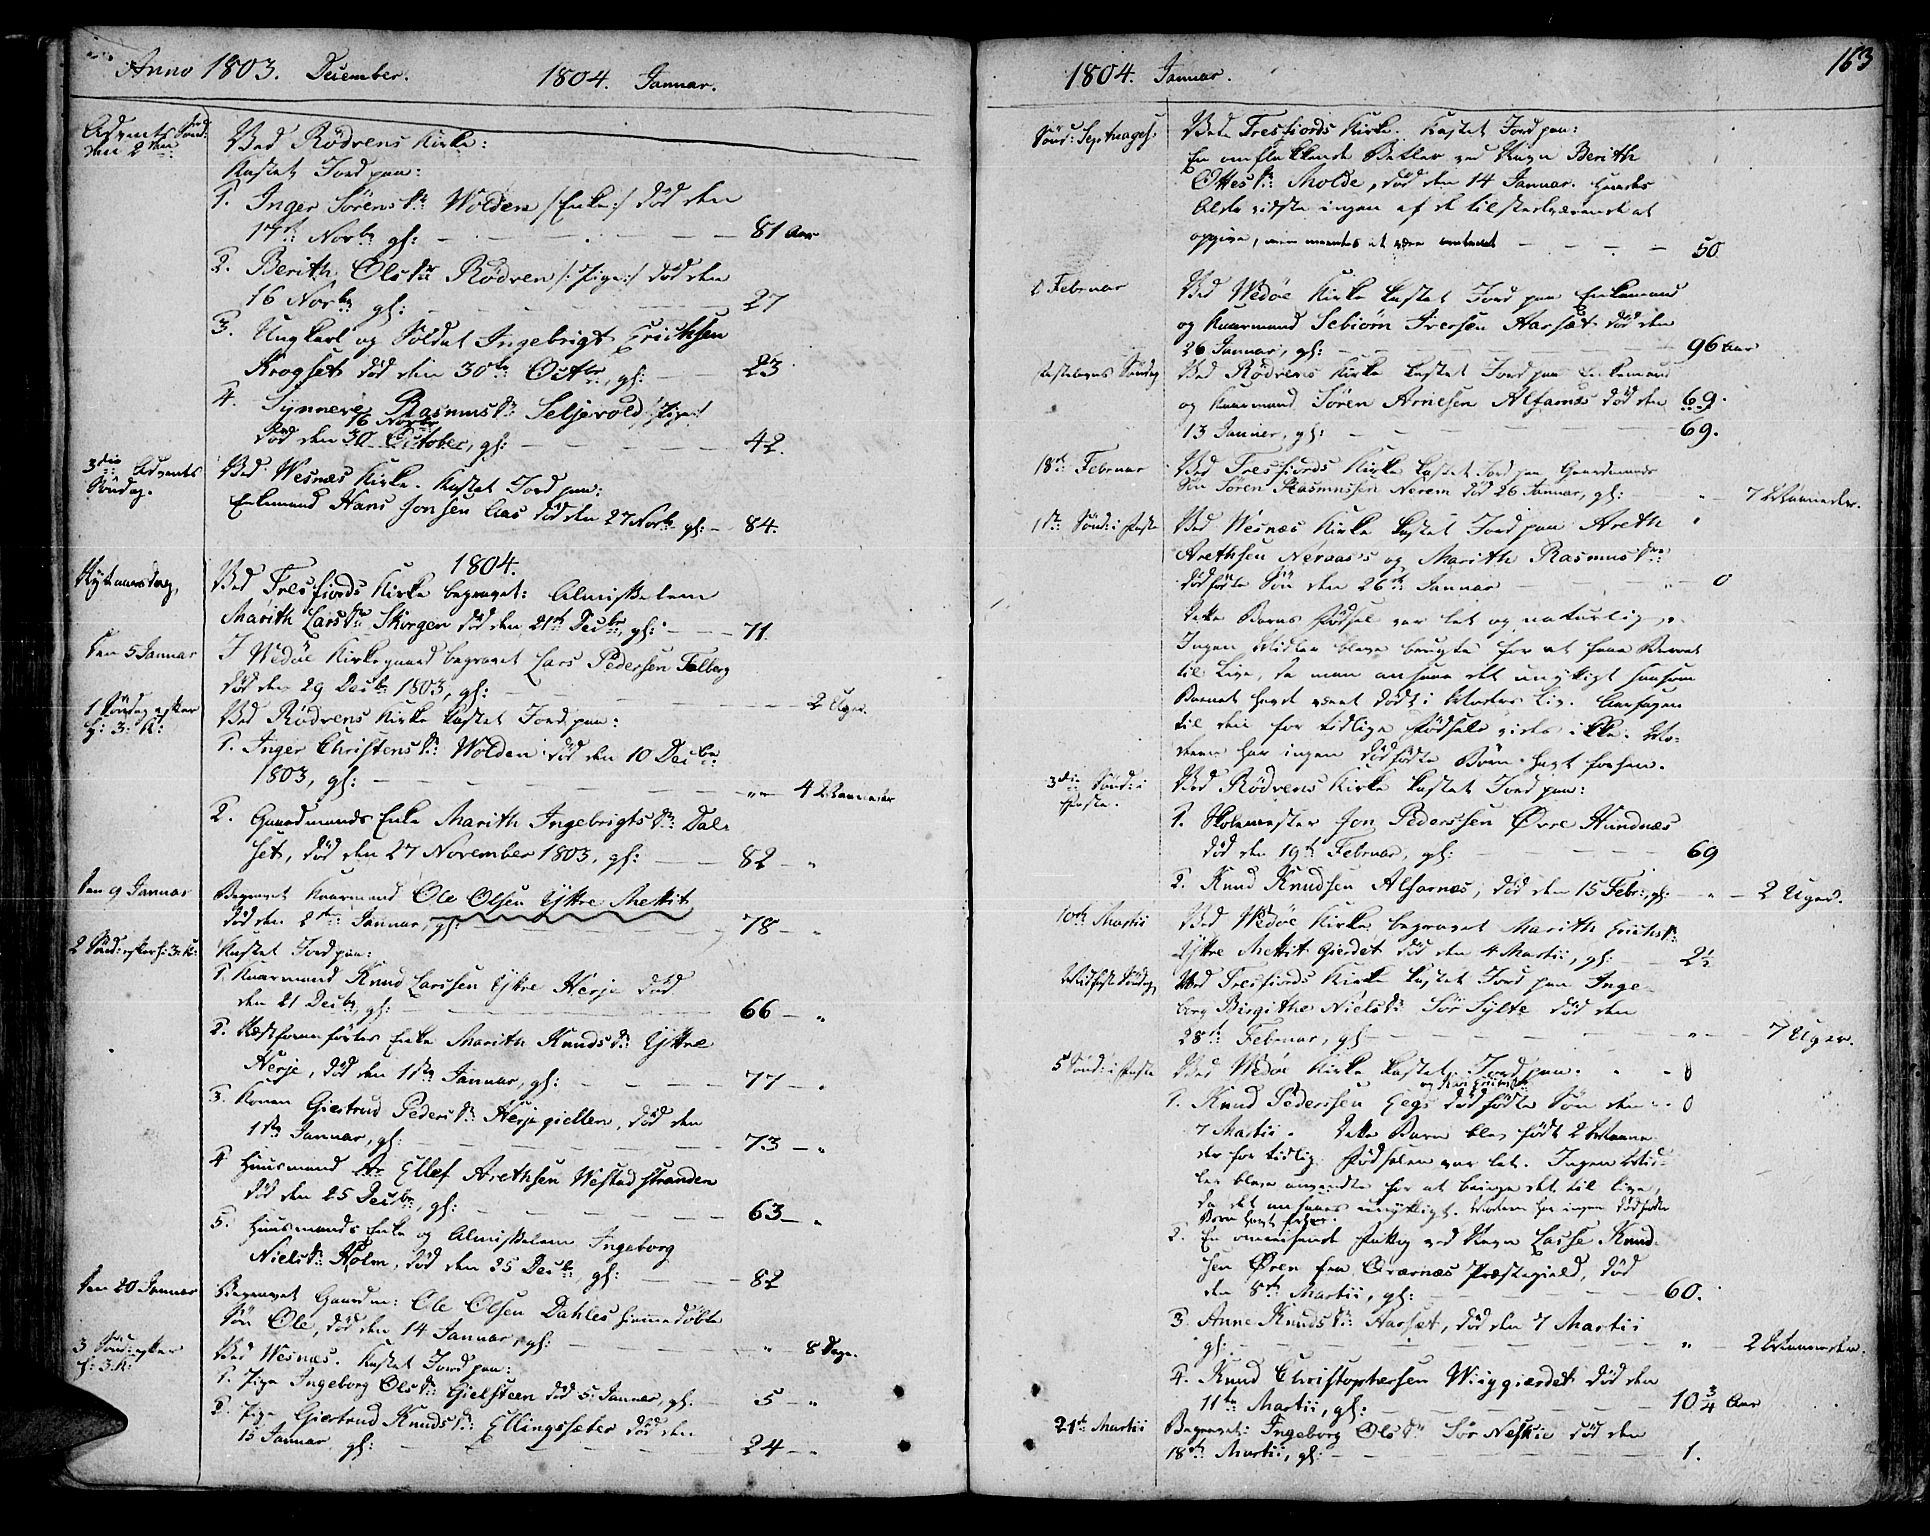 Anno 1803. December. 1804. Januar.
Advents Sönd:
den 2den
Ved Rödvens Kirke:
Kastet Jord paa:
1. Inger Sörensdr Wolden /:Enke:/ död den
17de Novbr gl: 81 Aar
2. Berith Olsdr Rödven /:Pige:/ död den
16 Novbr gl: 27
3. Ungkarl og Soldat Ingebrigt Erichsen
Krogset död den 30te Octbr, gl: 23
4. Synneve Rasmusdr Seljevold /:Pige:/
16 Novbr
död den 30 October, gl: 42.
3die Advents
Söndag.
Ved Wesnæs Kirke. Kastet Jord paa:
Enkemand Hans Jonsen Aas död den 27 Novbr gl: 84.
1804.
Nytaarsdag,
Ved Tresfiords Kirke begravet: Almisselem
Marith Larsdr Skorgen död den 21de Decbr, gl: 71.
Den 5 Januar
I Wedöe Kirkegaard begravet Lars Pedersen Talberg
död den 29 Decbr 1803, gl: 2 Uger.
1 Söndag efter
h: 3: K:
Ved Rödvens Kirke kastet Jord paa:
1. Inger Christensdr Wolden död den 10 Decbr
1803, gl: " 4 Maaneder
2. Gaardmands Enke Marith Ingebrigtsdr Dal-
set, död den 27 November 1803, gl: 82 "
Den 9 Januar
Begravet Kaarmand Ole Olsen Yttre Mettit
död den 2den Januar, gl: 78 "
2 Sönd: efter h: 3: K:
Kastet Jord paa:
1. Kaarmand Knud Larssen Yttre Herje död
den 21 Decbr, gl: 66 "
2. Næstforanförtes Enke Marith Knudsdr Yttre
Herje, död den 1ste Januar, gl: 77 "
3. Konen Giertrud Pedersdr Herjegiellen, död den
1ste Januar, gl: 73 "
4 Huusmand Ellef Arethsen Westadstranden
död den 25 Decbr, gl: 63 "
5. Huusmands Enke og Almisselem Ingeborg
Nielsdr Holm, död den 25 Decbr, gl: 82
Den 20 Januar
Begravet Gaardm: Ole Olsen Dahles hiemmedöbte
Sön Ole, död den 14 Januar, gl: " 8 Dage.
3 Sönd: efter
h: 3: K:
Ved Wesnæs. Kastet Jord paa:
1. Pige Ingeborg Olsdr Gielsteen död 5 Januar, gl: 5 "
2. Pige Giertrud Knudsdr Ellingssæter död den
15 Januar gl: 24 "
1804. Januar. 163
Sönd: Septuages:
Ved Tresfiords Kirke. Kastet Jord paa:
En omflakkende Betler ved Navn Berith
Ottesdr Molde, död den 14 Januar. Hendes
Alder vidste ingen af de tilstedeværende at
opgive, men meentes at være omtrent 50.
Februar
Ved Wedöe Kirke kastet Jord paa Enkemand
og Kaarmand Sebiörn Iversen Aarset död den
26 Januar, gl: 96 Aar
Fastelavns Söndag
Ved Rödvens Kirke kastet Jord paa Enkemand
og Kaarmand Sören Arnesen Alfarnæs död den 69.
13 Januar, gl: 69.
18de Februar
Ved Tresfiords Kirke kastet Jord paa Gaardmands
Sön Sören Rasmussen Nerem död 26 Januar, gl: " 7 Maaneder.
1ste Sönd: i Faste
Ved Wesnæs Kirke kastet Jord paa Areth
Arethsen Neraas's og Marith Rasmusdrs
dödfödte Sön den 26de Januar 0
Dette Barns Födsel var let og naturlig.
Ingen Midler bleve brugte for at faae Barnet
til Live, da man ansaae det unyttigt saasom
Barnet havde været dödt i Moders Liv. Aarsagen
til den for tidlige Födsel vides ikke. Mo-
deren har ingen dödfödte Börn havt forhen.
3die Sönd: i
Faste.
Ved Rödvens Kirke kastet Jord paa:
1. Skolemester Jon Pederssen Övre Hundnæs
död den 19de Februar, gl: 69
2. Knud Knudsen Alfarnæs, död den 15 Febr: gl: " 2 Uger.
10de Martii
Ved Wedöe Kirke begravet Marith Erichsdr
Yttre Mettit Gierdet död den 4 Martii, gl: 2½
Midfaste Söndag,
Ved Tresfiords Kirke kastet Jord paa Inge-
borg Birgithe Nielsdr Sör Sylte död den
28de Februar, gl: " 7 Uger.
5 Sönd: i Faste
Ved Wedöe Kirke kastet Jord paa. 0
1. Knud Pederssen Eegs dödfödte Sön den 0
7 Martii. Dette Barn blev födt 2 Maane-
der for tidlig. Födselen var let. Ingen Mid-
ler bleve anvendte for at bringe det til live,
da det ansaaes unyttigt. Moderen har ingen dödfödte
Börn havt forhen.
2. En omreisende Fattig ved Navn Lasse Knud-
sen Ören fra Qværnæs Præstegield, död
den 8de Martii, gl: 60.
3. Anne Knudsdr Aarset, död den 7 Martii
gl: " 2 Maaneder.
4. Knud Christophersen Wiiggierdet död den
11te Martii, gl: 10 3/4 Aar
21de Martii
Begravet: Ingeborg Olsdr Sör Nesie död den
18de Martii, gl: 1.